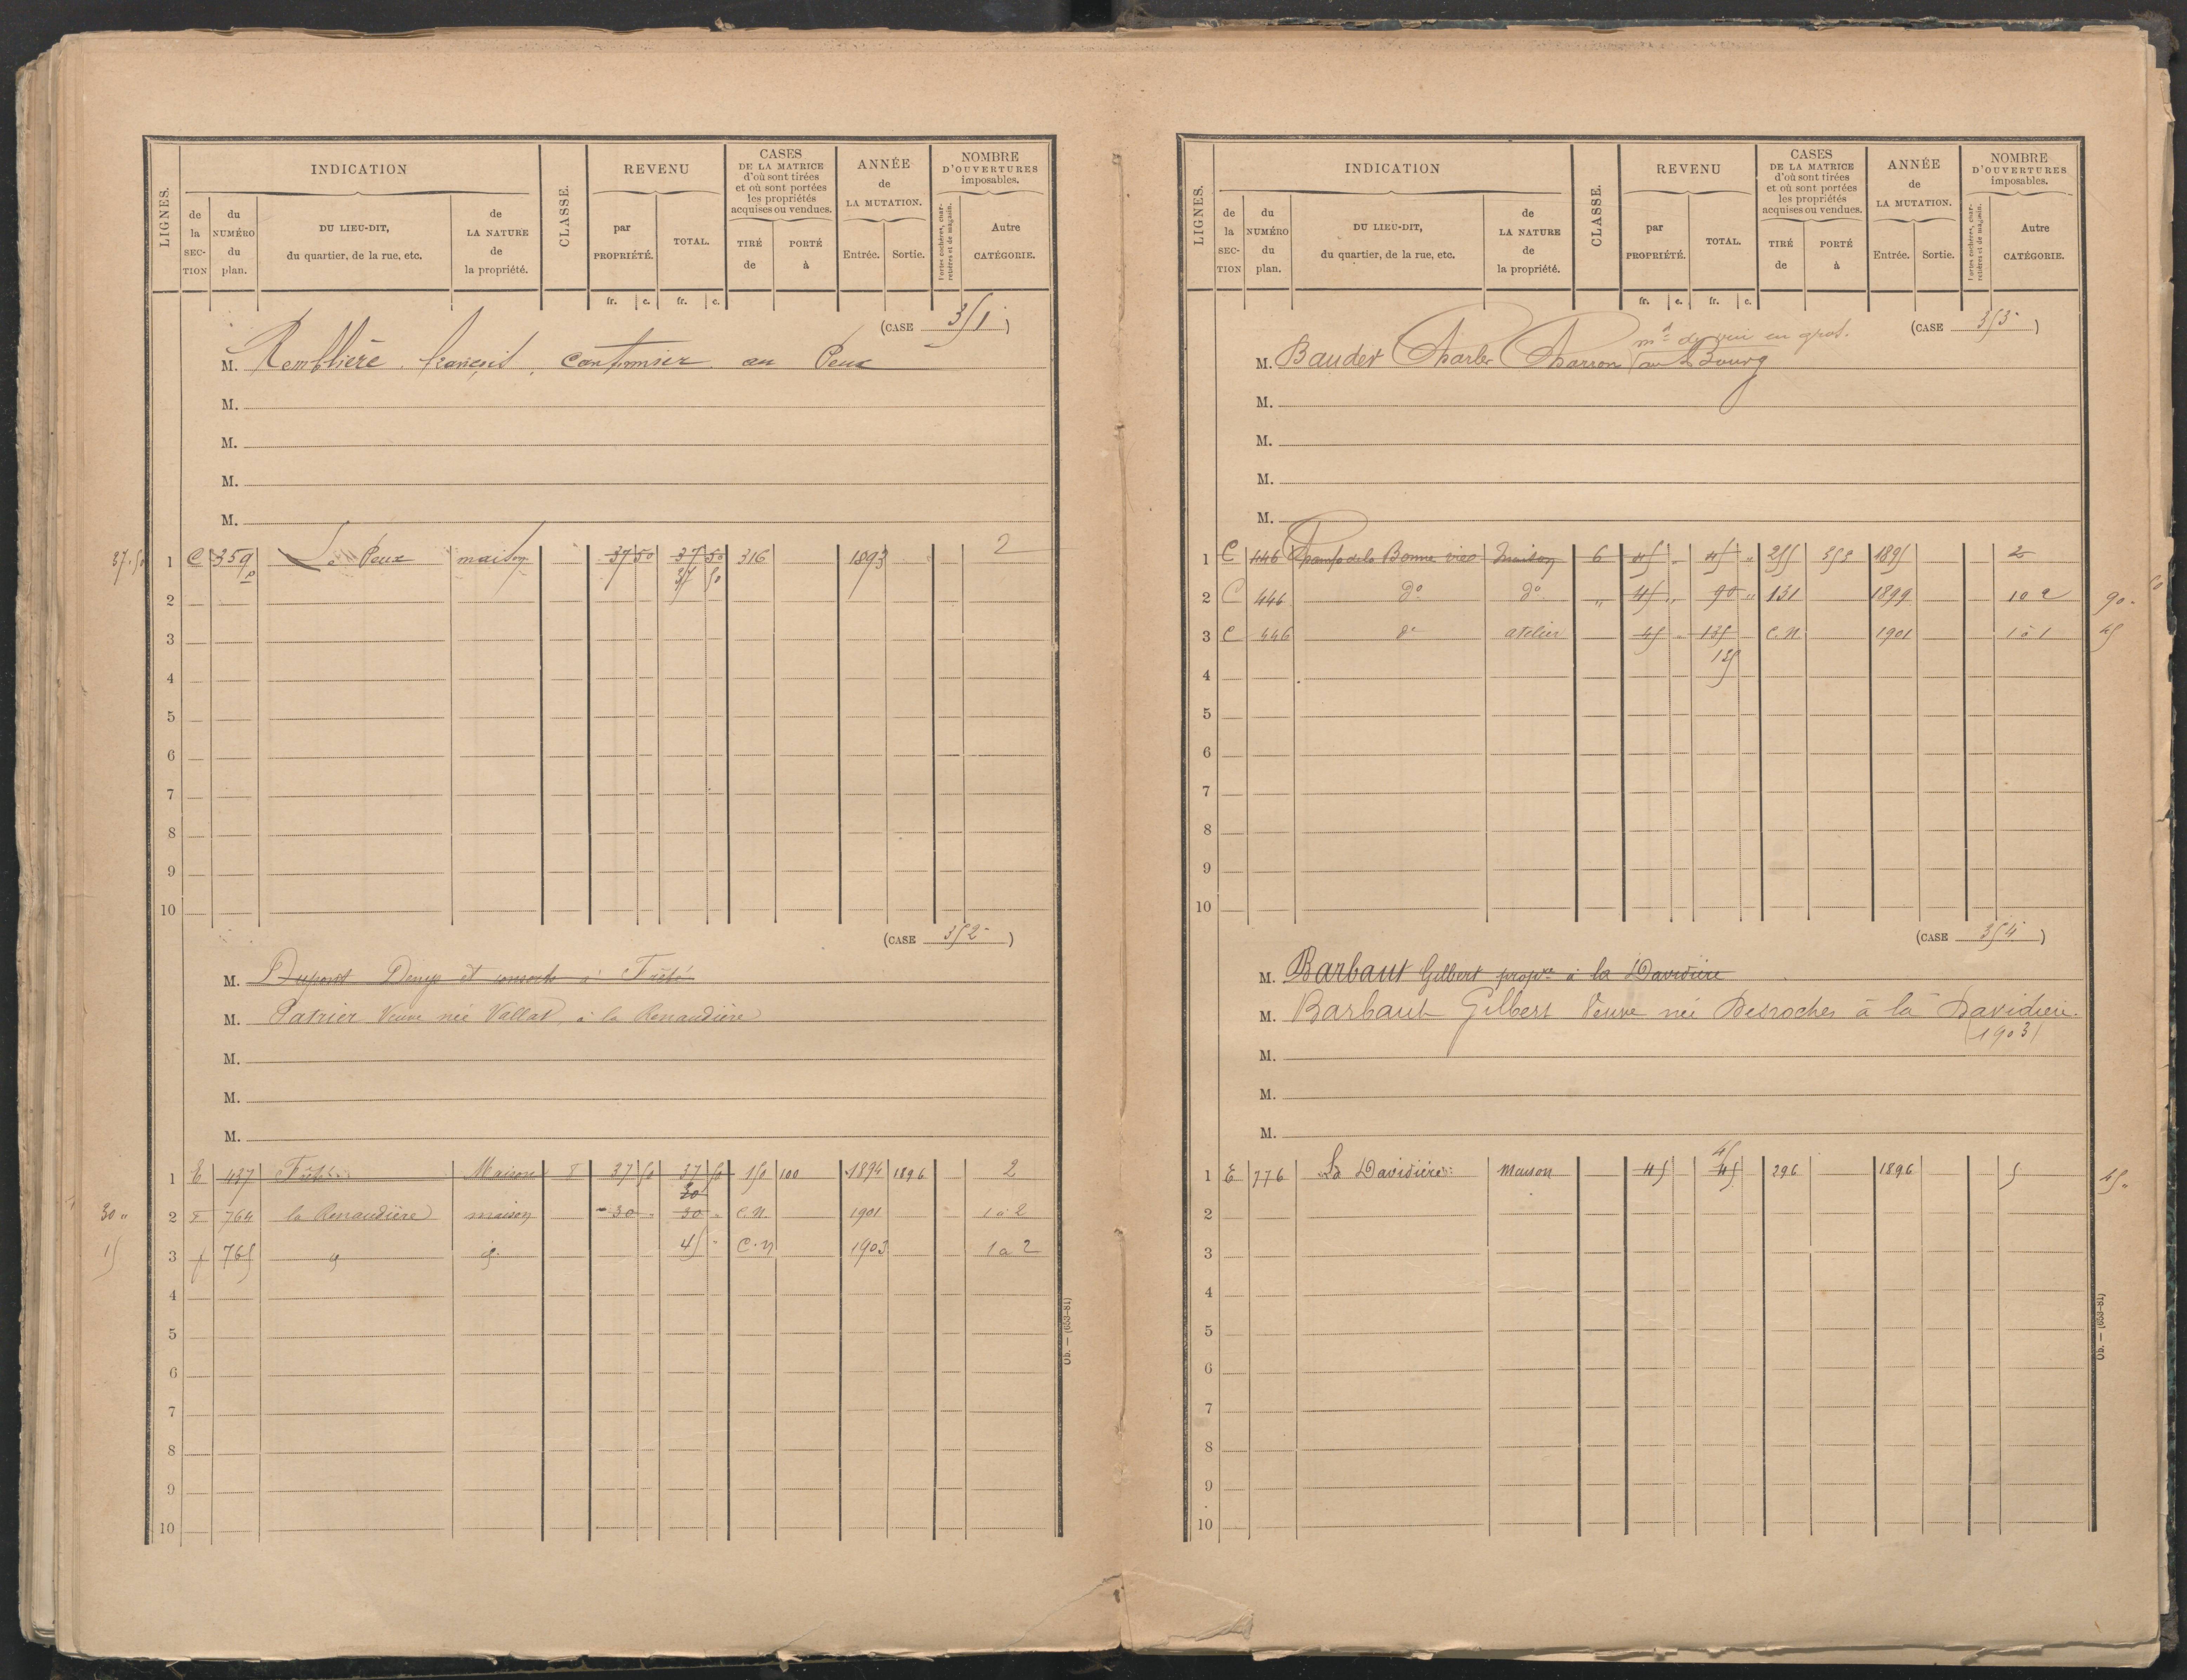 LIGNES.
INDICATION
de la SECTION
du NUMÉRO du plan.
DU LIEU-DIT, du quartier, de la rue, etc.
de LA NATURE de la propriété.
CLASSE.
REVENU
par PROPRIÉTÉ.
TOTAL.
CASES DE LA MATRICE d'où sont tirées et où sont portées les propriétés acquises ou vendues.
TIRÉ de
PORTÉ à
ANNÉE de LA MUTATION.
Entrée.
Sortie.
NOMBRE D'OUVERTURES imposables.
Portes cochères, charretières et de magasin.
Autre CATÉGORIE.
fr. c. fr. c.
(CASE 351)
M. Remblière françois, cantonnier au Peux
M.
M.
M.
M.
37.50 1 C 359p Le Peux maison 37 50 37 50 316 1893 2
37 50
2
3
4
5
6
7
8
9
10
(CASE 352)
M. Dupont Denys et consorts à Frété
M. Patrier Veuve née Vallat, à la Renaudière
M.
M.
M.
1 E 437 Maison 8 37 50 37 50 150 100 1894 1896 2
30
30 " 2 E 764 la Renaudière maison 30 " 30 " C.N. 1901 1 à 2
15 3 f 765 45 " C.N 1903 1 a 2
4
5
6
7
8
9
10
Ob. — (653-81)
LIGNES.
INDICATION
de la SECTION
du NUMÉRO du plan.
DU LIEU-DIT, du quartier, de la rue, etc.
de LA NATURE de la propriété.
CLASSE.
REVENU
par PROPRIÉTÉ.
TOTAL.
CASES DE LA MATRICE d'où sont tirées et où sont portées les propriétés acquises ou vendues.
TIRÉ de
PORTÉ à
ANNÉE de LA MUTATION.
Entrée.
Sortie.
NOMBRE D'OUVERTURES imposables.
Portes cochères, charretières et de magasin.
Autre CATÉGORIE.
fr. c. fr. c.
(CASE 353)
md de vin en gros.
M. Baudet Charles Charron au Bourg
M.
M.
M.
M.
1 C 446 Champ de la Bonne vieo Maison 6 45 " 45 " 255 1895 2
2 C 446 do do " 45 " 90 " 131 1899 10 2 90 "
3 C 446 do atelier 45 " 135 C.N. 1901 1 à 1 45
135
4
5
6
7
8
9
10
(CASE 354)
M. Barbaut Gilbert propre à la Davidière
M. Barbaut Gilbert Veuve née Desroches à la Davidière.
(1903)
M.
M.
M.
45
1 E 776 La Davidière Maison 45 45 296 1896 5 45 "
2
3
4
5
6
7
8
9
10
Ob. — (653-81)